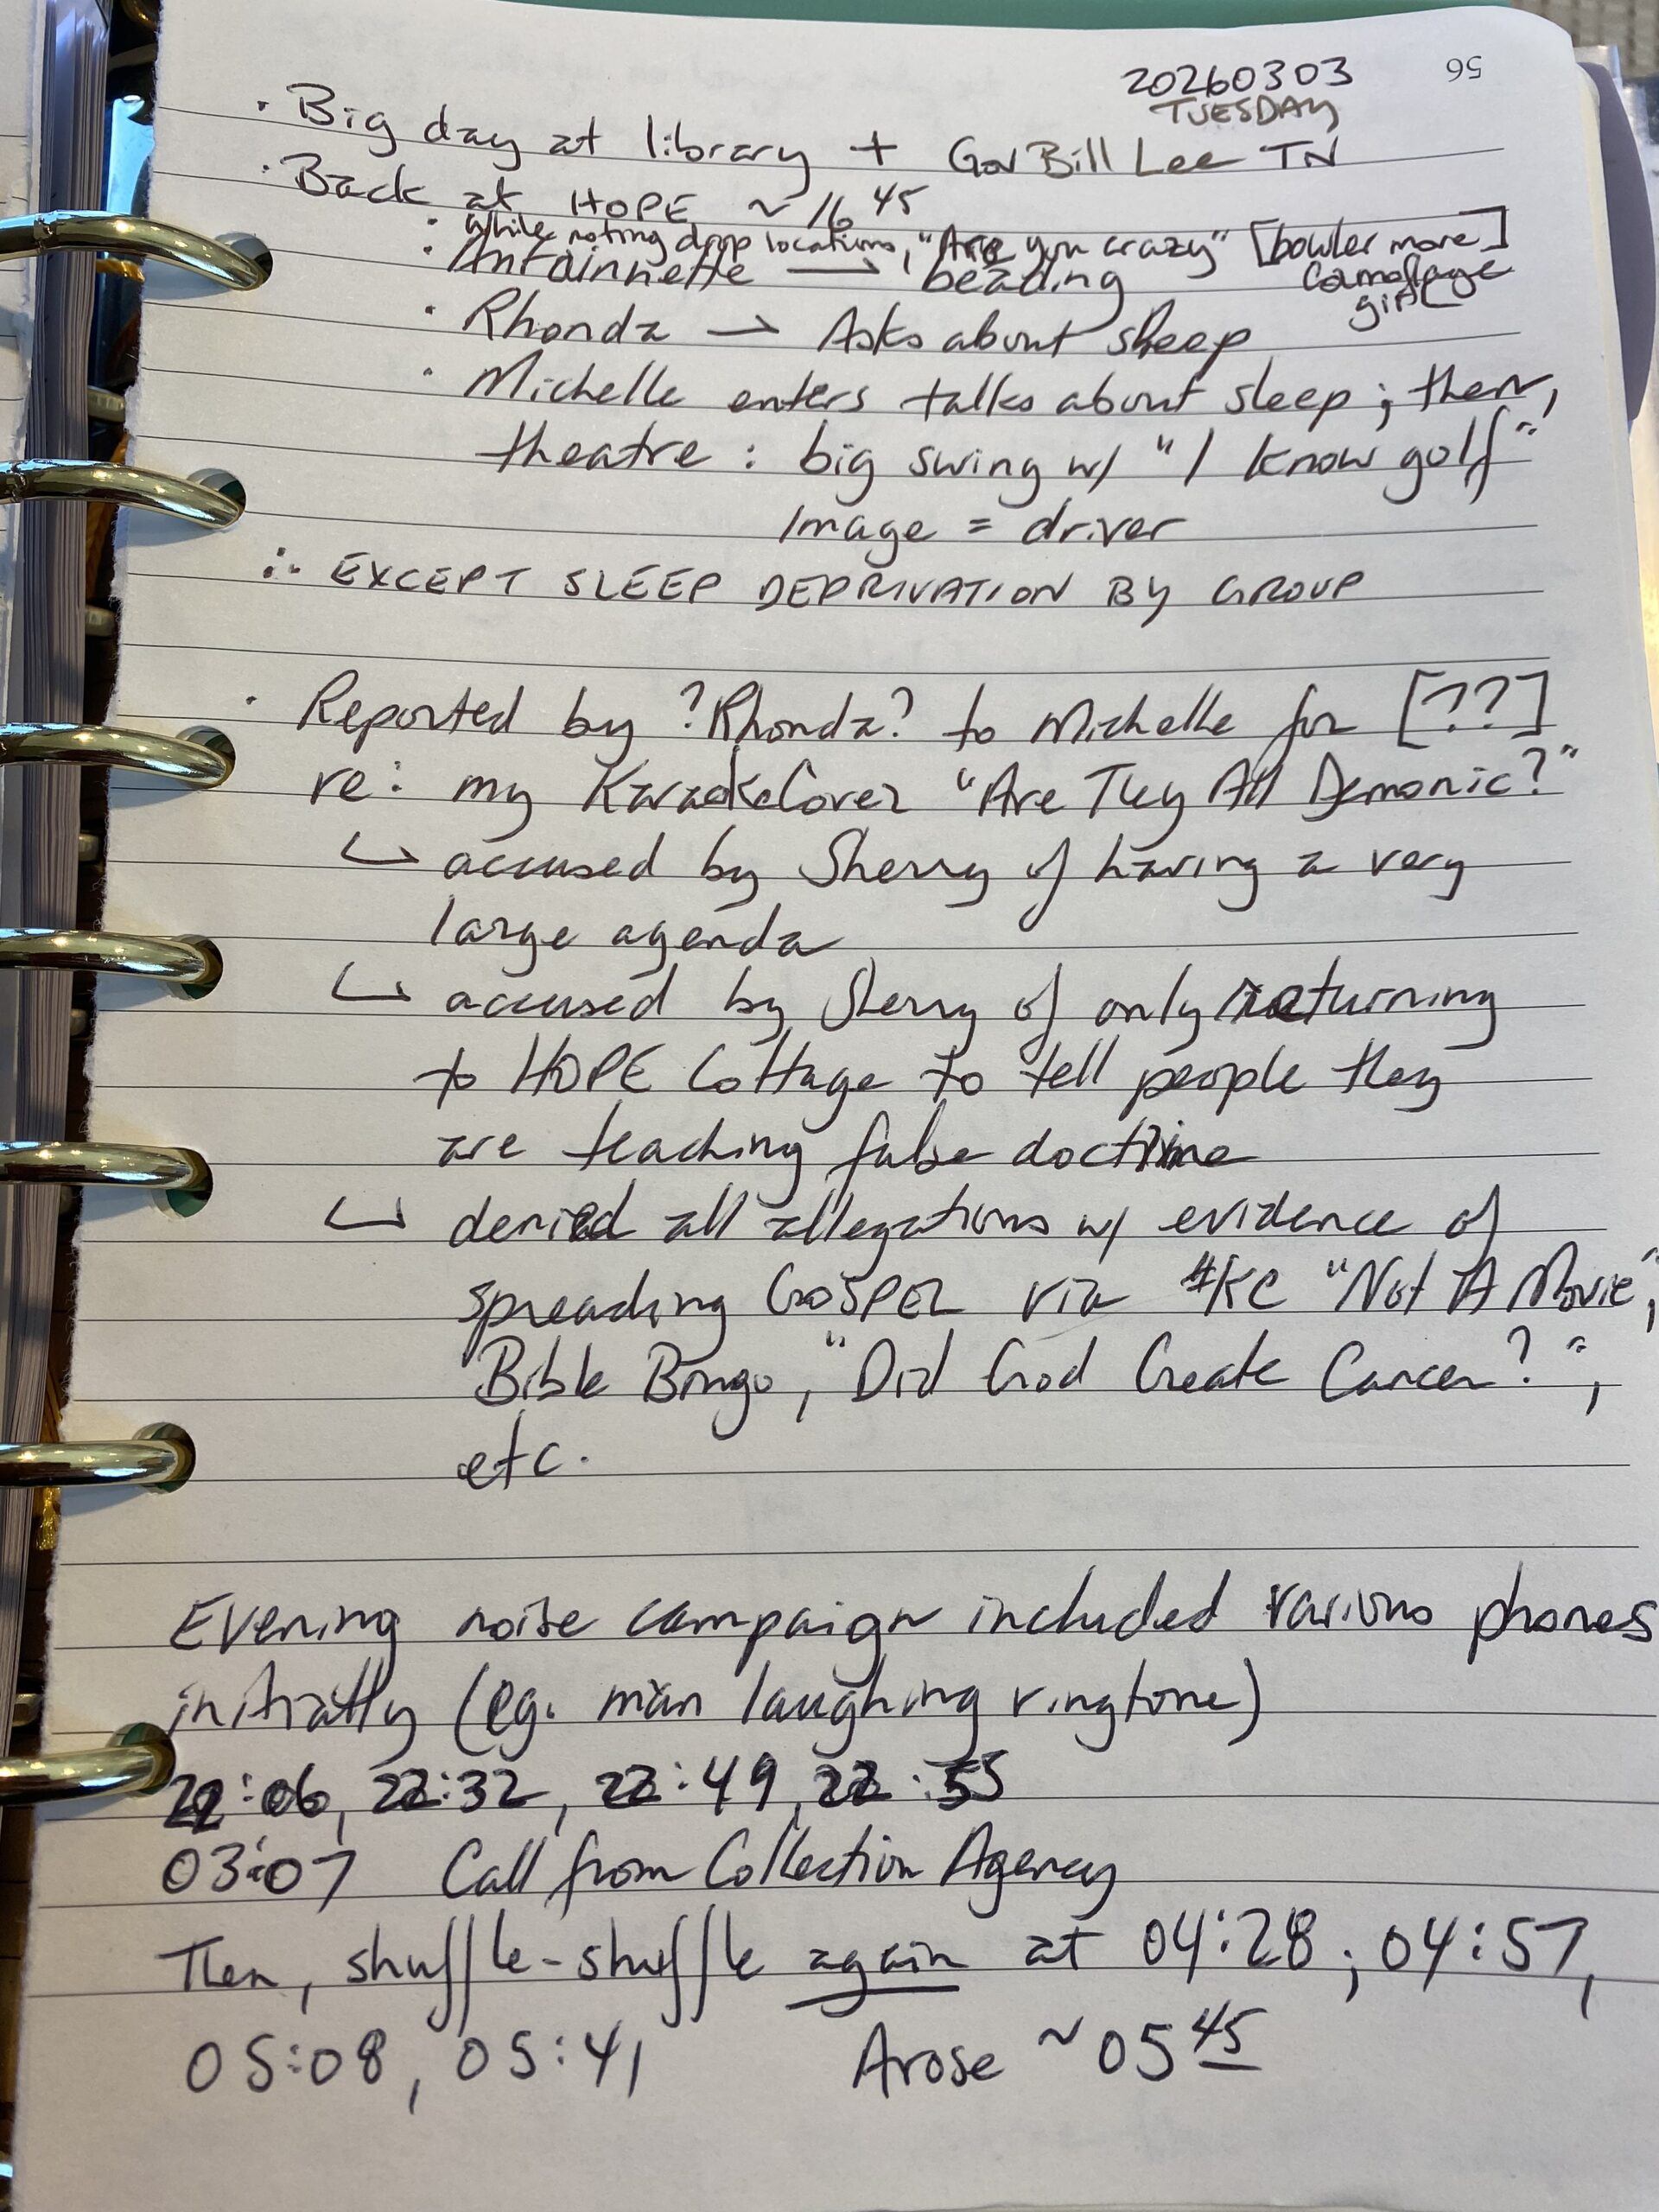 56
20260303
TUESDAY
· Big day at library + Gov Bill Lee TN
· Back at HOPE ~ 16 45
· While noting drop locations, "Are you crazy" [bowler more]
· Antoinnette → beading
Camoflage
girl
· Rhonda → Asks about sleep
· Michelle enters talks about sleep; then,
theatre: big swing w/ "I know golf"
Image = driver
∴ EXCEPT SLEEP DEPRIVATION BY GROUP
· Reported by ?Rhonda? to Michelle for [??]
re: my KaraokeCover "Are They All Demonic?"
↳ accused by Sherry of having a very
large agenda
↳ accused by Sherry of only returning
to HOPE Cottage to tell people they
are teaching false doctrine
↳ denied all allegations w/ evidence of
spreading GOSPEL via #KC "Not A Movie",
Bible Bingo, "Did God Create Cancer?",
etc.
Evening noise campaign included various phones
initially (eg. man laughing ringtone)
22:06, 22:32, 22:49, 22:55
03:07 Call from Collection Agency
Then, shuffle-shuffle again at 04:28; 04:57,
05:08, 05:41 Arose ~05 45